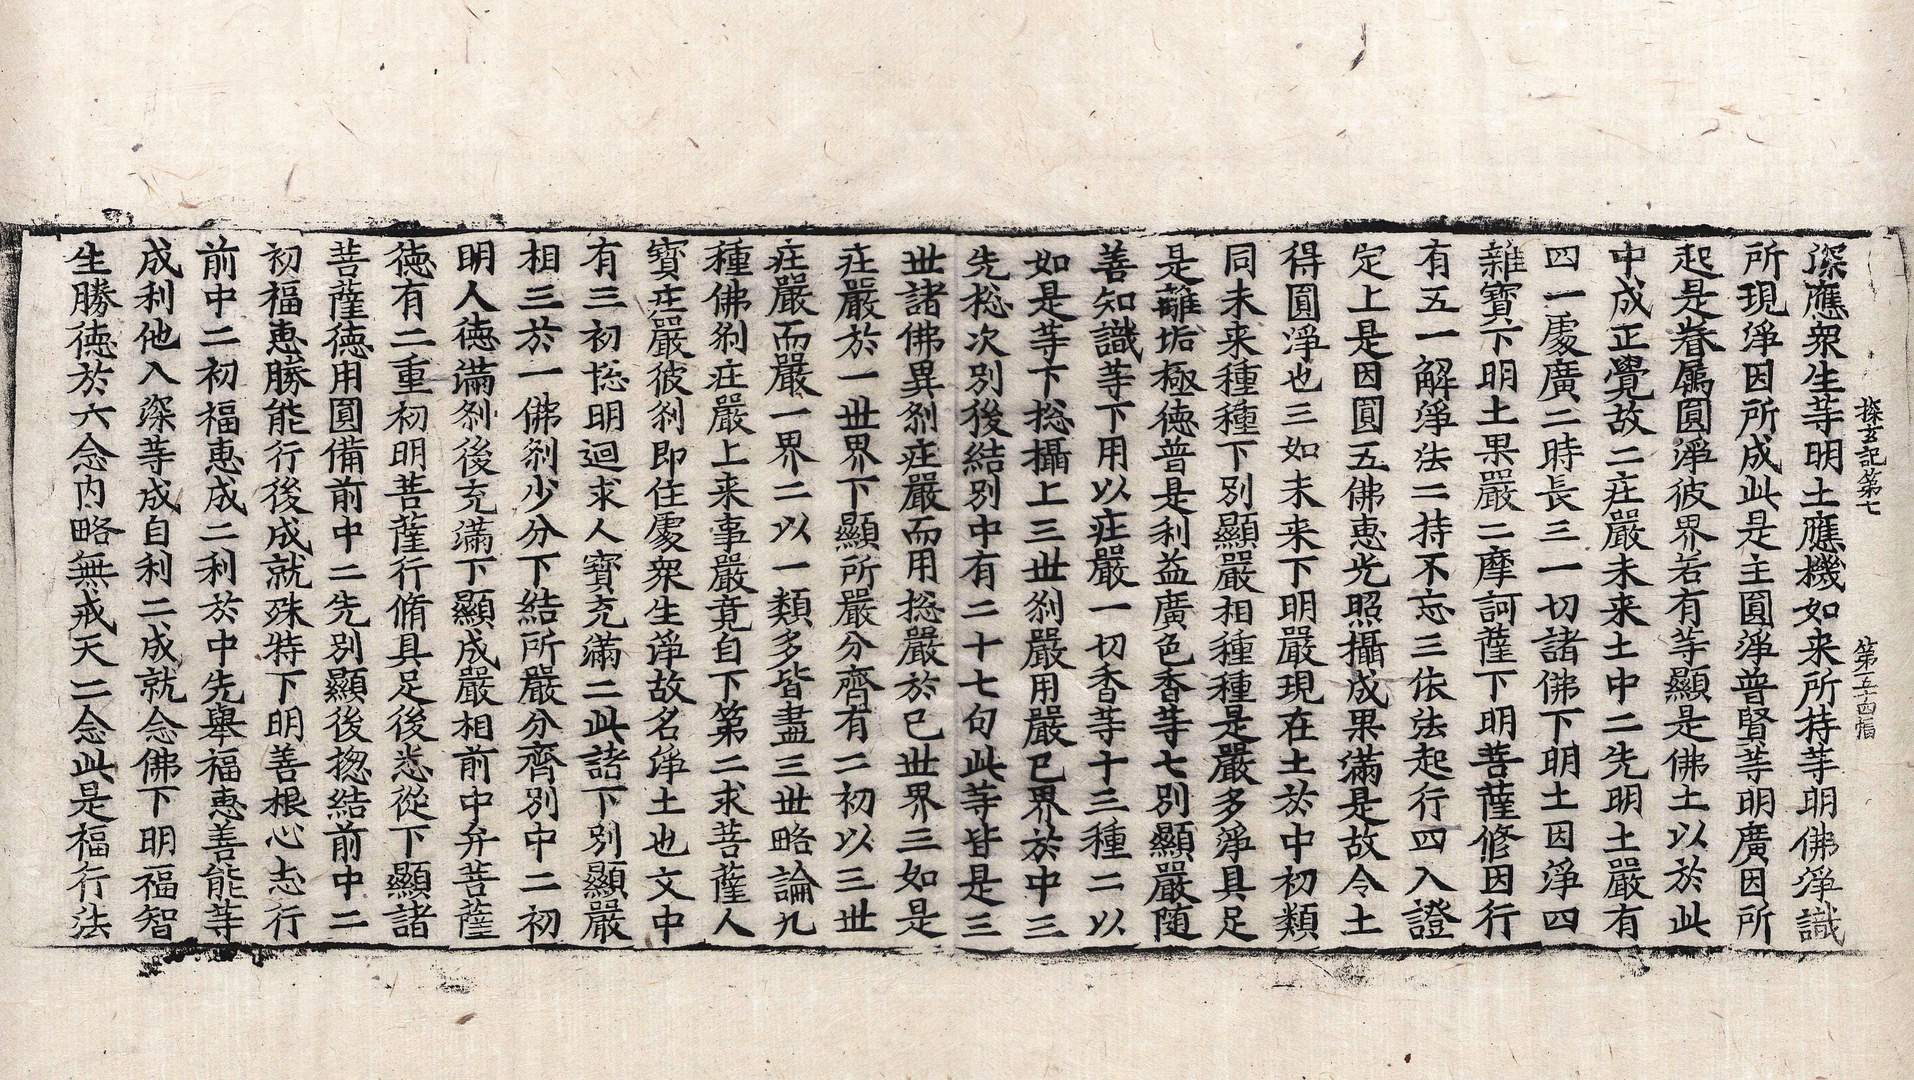 探玄記第七 第五十四幅
深應衆生等明土應機如来所持等明佛淨識
所現淨因所成此是主圓淨普賢等明廣因所
起是眷属圓淨彼界若有等顯是佛土以於此
中成正覺故二庄嚴未来土中二先明土嚴有
四一處廣二時長三一切諸佛下明土因淨四
雜寶下明土果嚴二摩訶薩下明菩薩修因行
有五一解淨法二持不忘三依法起行四入證
定上是因圓五佛恵光照攝成果滿是故令土
得圓淨也三如未来下明嚴現在土於中初類
同未来種種下別顯嚴相種種是嚴多淨具足
是離垢極徳普是利益廣色香等七別顯嚴随
善知識等下用以庄嚴一切香等十三種二以
如是等下捴攝上三世刹嚴用嚴已界於中三
先捴次別後結別中有二十七句此等皆是三
世諸佛異刹庄嚴而用捴嚴於已世界三如是
庄嚴於一世界下顯所嚴分齊有二初以三世
庄嚴而嚴一界二以一類多皆盡三世略論九
種佛刹庄嚴上来事嚴竟自下第二求菩薩人
寶庄嚴彼刹即住處衆生淨故名淨土也文中
有三初捴明迴求人寶充滿二此諸下別顯嚴
相三於一佛刹少分下結所嚴分齊別中二初
明人徳滿刹後充滿下顯成嚴相前中弁菩薩
徳有二重初明菩薩行脩具足後悉從下顯諸
菩薩徳用圓備前中二先別顯後捴結前中二
初福恵勝能行後成就殊特下明善根心志行
前中二初福恵成二利於中先舉福恵善能等
成利他入深等成自利二成就念佛下明福智
生勝徳於六念内略無戒天二念此是福行法